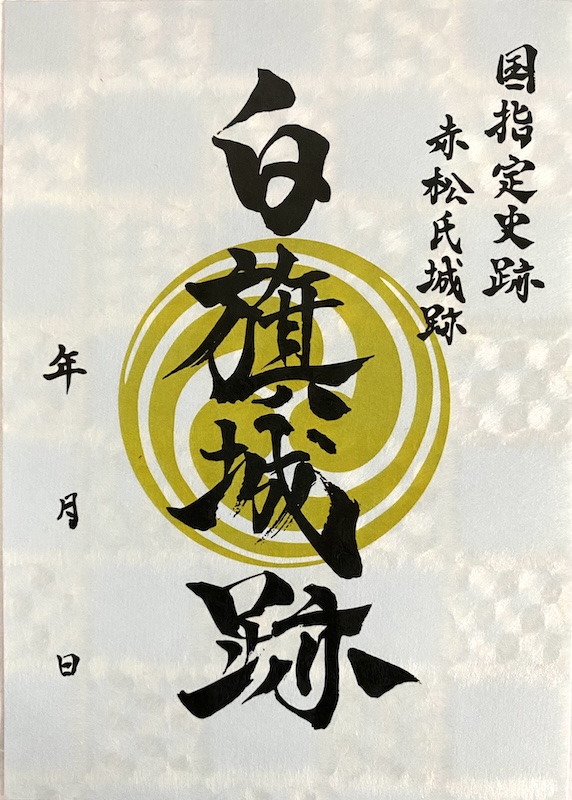 国指定史跡
赤松氏城跡
白旗城跡
年 月 日